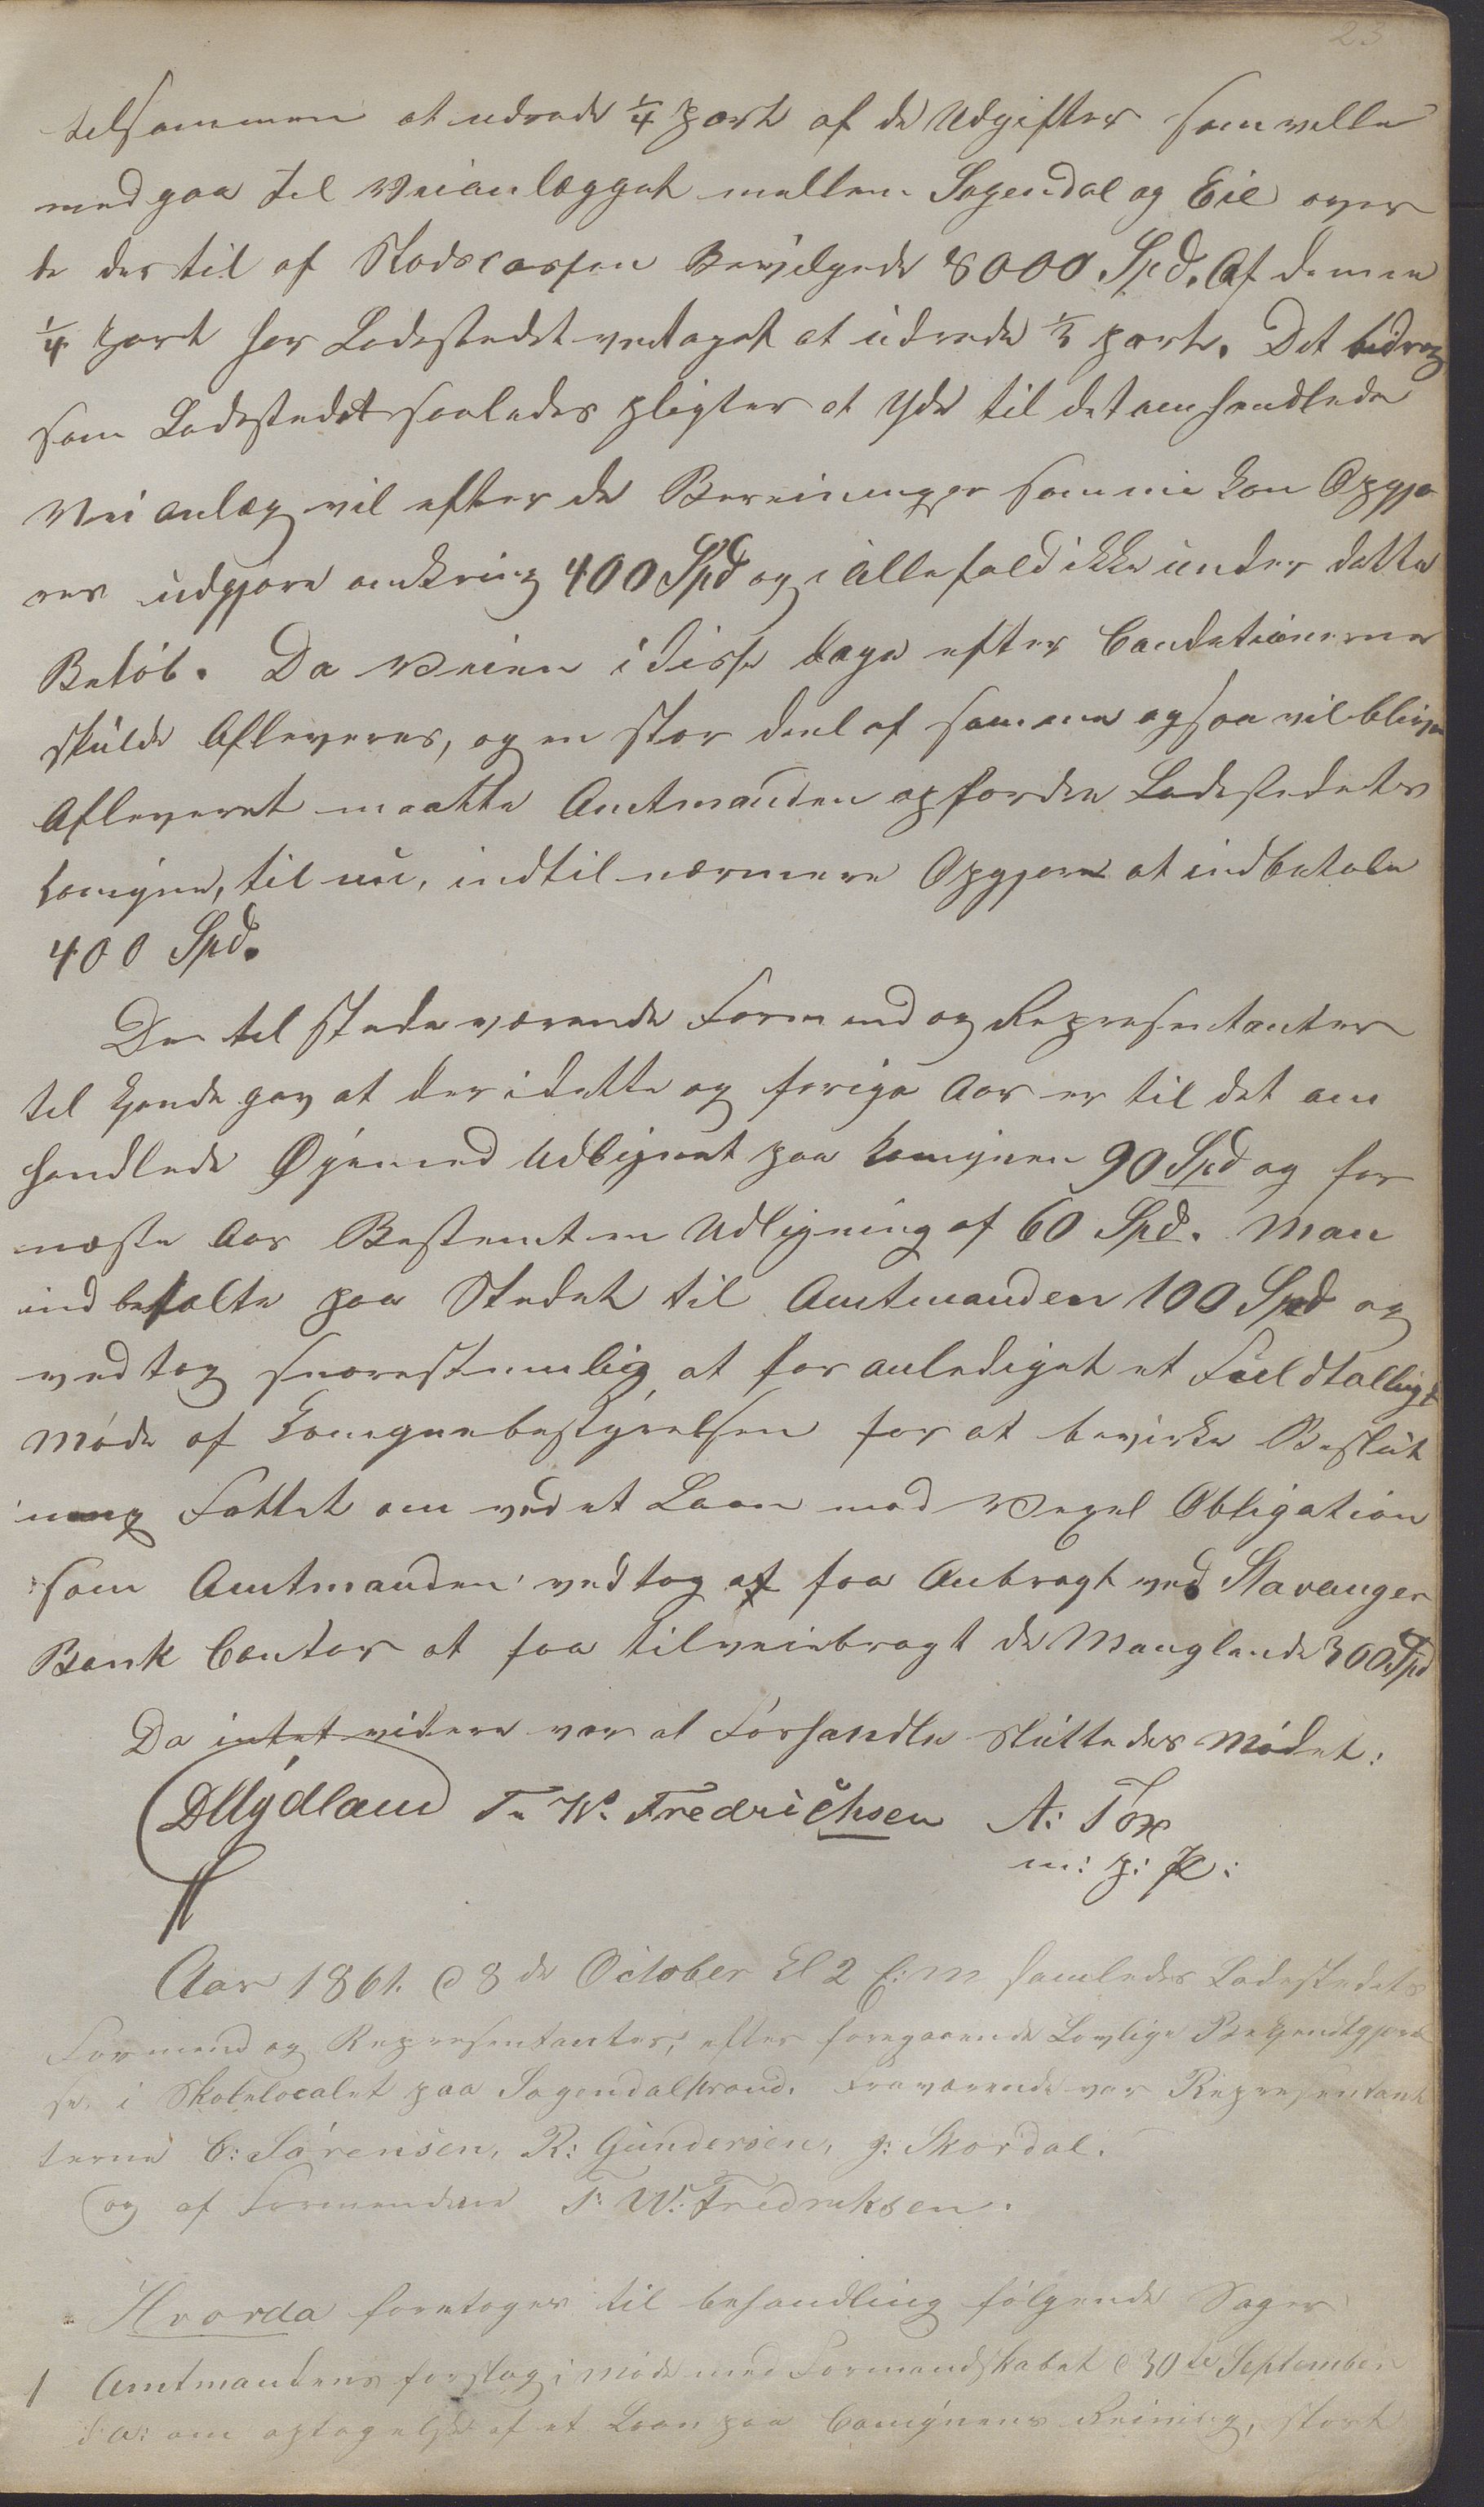 23
telsammen at udrede 1/4 part af de Udgifter som ville
medgaa til Veianlægget mellem Sogendal og Eie over
de dertil af Stadscassen Bevilgede 8000 Spd. Af denne
1/4 part har Ladestedet vedtaget at udrede 1/3 part. Det bidrag
som Ladestedet saaledes pligter at Yde til det omhandlede
Veianlæg vil efter de Bereininger som nu kan Opgjø
res udgjøre omkring 400 Spd og i alle fald ikke under dette
Beløb. Da Veien i disse Dage efter Conditionerne
skulde Afleveres, og en stor deel af samme ogsaa vil blive
Afleveret maatte Amtmanden opfordre Ladestedets
Comyne, til nu, indtil nærmere Opgjøre at indbetale
400 Spd.
De tel stedeværende Formend og Representanter
tel kjende gav at der i dette og forige Aar er til det om
handlede Øyemed Udlignet paa Komynen 90 Spd og for
neste Aar Bestemt en Udligning af 60 Spd. Man
indbetalte paa Stedet til Amtmanden 100 Spd og
vedtog enerestemlig at foranlediget et Fuldtalligt
Møde af Komynebestyrelsen for at bevirke Beslut
ning Fattet om ved et Laan mod Vexel Obligation
som Amtmanden vedtog at faa Anbragt ved Stavanger
Bank Contor at faa tilveiebragt de Manglende 300 Spd
Da intet videre var at Forhandle Sluttedes Mødet:
DMydland T. W. Fredrichsen A: Tox
m: p: P:
Aar 1861. d 8de October Kl 2 E:M samledes Ladestedets
Formend og Representanter, efter foregaaende Lovlige Bekjendtgjørel
se i Skolelocalet paa Sogendalstrand. Fraværende var Represendant
terne C: Sørensen, R: Gundersen, J: Skordal.
og af Formendene T: W: Fredriksen.
Hvorda foretoges til behandling følgende Sager
1 Amtmandens forslag i møde med Formandskabet d 30te September
d: A: om optagelse af et Laan paa Comynens Reining, stort